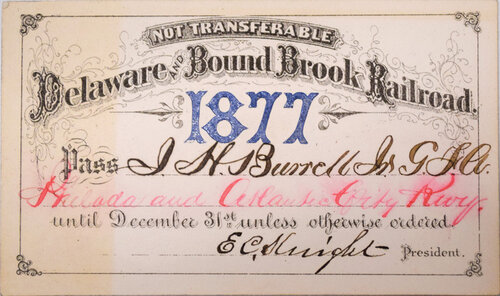 NOT TRANSFERABLE
Delaware AND Bound Brook Railroad.
1877
Pass J H Burrell Jr. G.F.A.
Philada and Atlantic City Rwy.
until December 31st unless otherwise ordered.
E C Knight President.